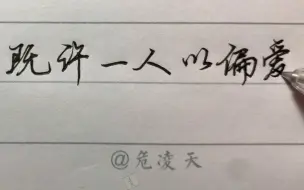 既许一人以偏爱
@危凌天